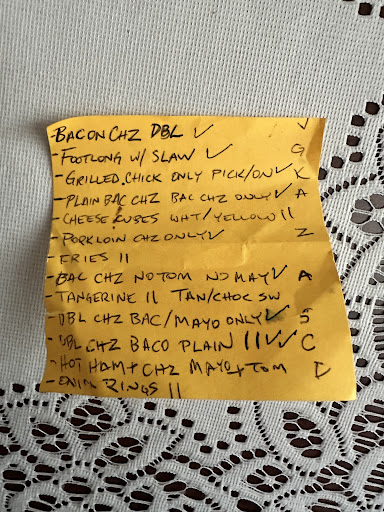 -BACON CHZ DBL ✓ J
-FOOTLONG W/ SLAW ✓ G
-GRILLED CHICK ONLY PICK/ON ✓ K
-PLAIN BAC CHZ BAC CHZ ONLY ✓ A
-CHEESE CUBES WHT/YELLOW II
-PORKLOIN CHZ ONLY ✓ Z
-FRIES II
-BAC CHZ NO TOM NO MAY ✓ A
-TANGERINE II TAN/CHOC SW
-DBL CHZ BAC/MAYO ONLY ✓ S
-DBL CHZ BACO PLAIN II ✓✓ C
-HOT HAM + CHZ MAYO + TOM
-ONION RINGS II